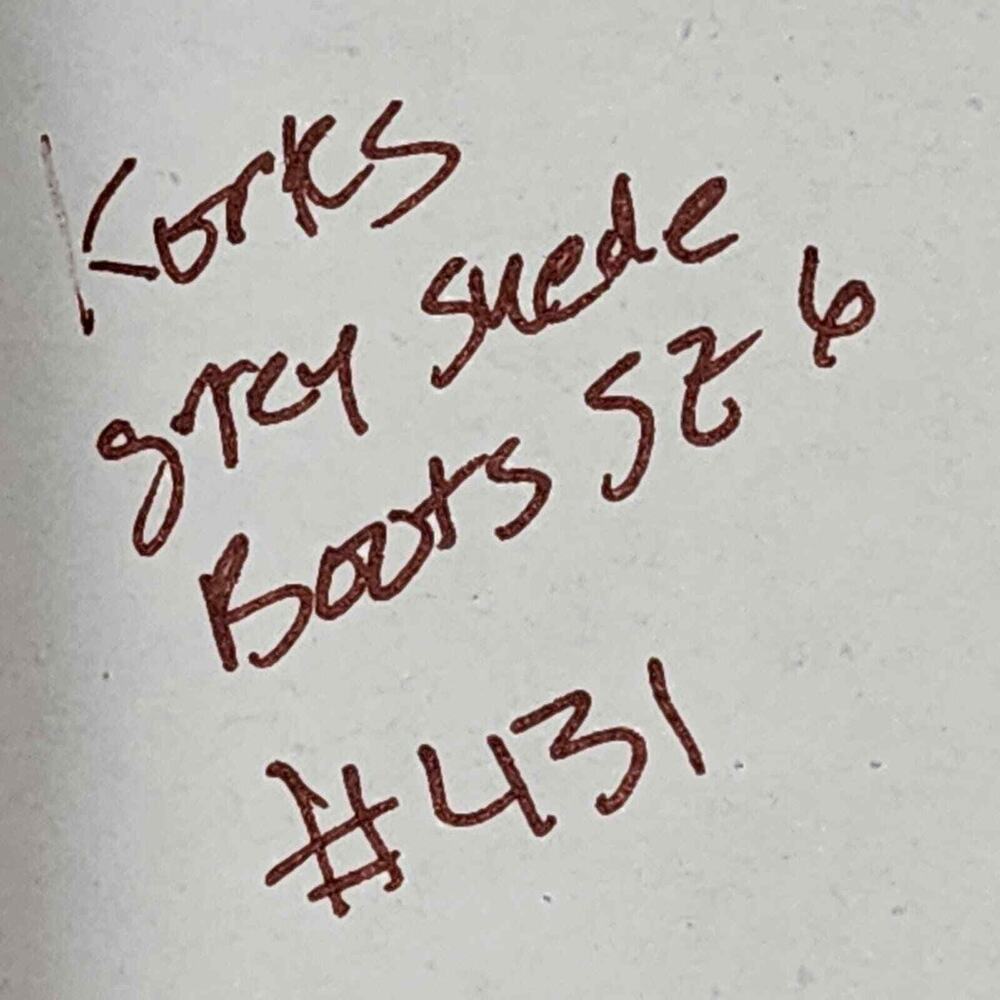 Korks
grey suede
Boots SZ 6
#431